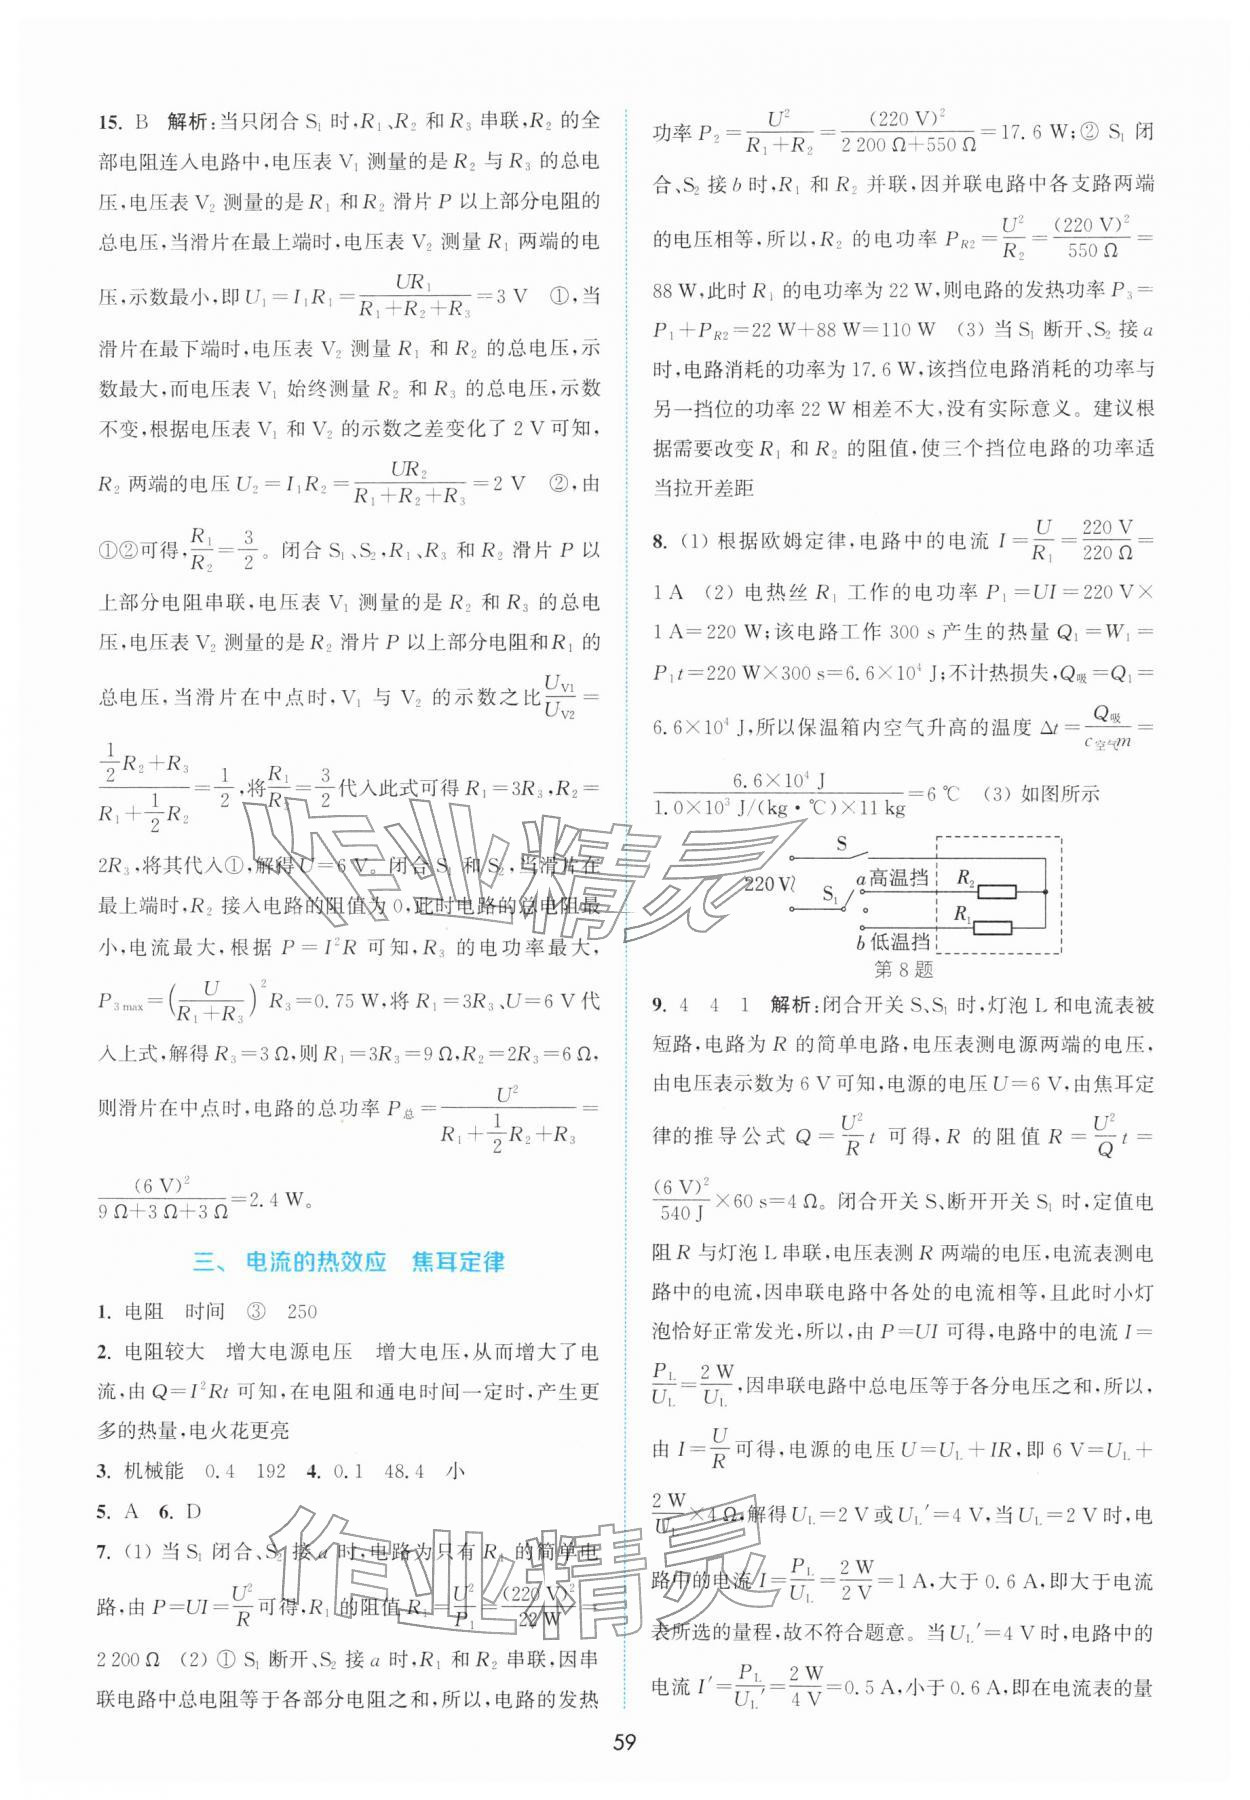 15. B 解析:当只闭合 S₁ 时,R₁、R₂ 和 R₃ 串联,R₂ 的全
部电阻连入电路中,电压表 V₁ 测量的是 R₂ 与 R₃ 的总电
压,电压表 V₂ 测量的是 R₁ 和 R₂ 滑片 P 以上部分电阻的
总电压,当滑片在最上端时,电压表 V₂ 测量 R₁ 两端的电
压,示数最小,即 U₁=I₁R₁=UR₁/(R₁+R₂+R₃)=3 V ①,当
滑片在最下端时,电压表 V₂ 测量 R₁ 和 R₂ 的总电压,示
数最大,而电压表 V₁ 始终测量 R₂ 和 R₃ 的总电压,示数
不变,根据电压表 V₁ 和 V₂ 的示数之差变化了 2 V 可知,
R₂ 两端的电压 U₂=I₁R₂=UR₂/(R₁+R₂+R₃)=2 V ②,由
①②可得,R₁/R₂=3/2。闭合 S₁、S₂,R₁、R₃ 和 R₂ 滑片 P 以
上部分电阻串联,电压表 V₁ 测量的是 R₂ 和 R₃ 的总电
压,电压表 V₂ 测量的是 R₂ 滑片 P 以上部分电阻和R₁ 的
总电压,当滑片在中点时,V₁ 与 V₂ 的示数之比 U_V1/U_V2=
(½R₂+R₃)/(R₁+½R₂)=1/2,将R₁/R₂=3/2代入此式可得 R₁=3R₃,R₂=
2R₃,将其代入①,解得 U=6 V。闭合 S₁ 和 S₂,当滑片在
最上端时,R₂ 接入电路的阻值为 0,此时电路的总电阻最
小,电流最大,根据 P=I²R 可知,R₃ 的电功率最大,
P₃max=(U/(R₁+R₃))²R₃=0.75 W,将 R₁=3R₃、U=6 V代
入上式,解得 R₃=3 Ω,则 R₁=3R₃=9 Ω,R₂=2R₃=6 Ω,
则滑片在中点时,电路的总功率 P总=U²/(R₁+½R₂+R₃)=
(6 V)²/(9 Ω+3 Ω+3 Ω)=2.4 W。
三、电流的热效应 焦耳定律
1. 电阻 时间 ③ 250
2. 电阻较大 增大电源电压 增大电压,从而增大了电
流,由 Q=I²Rt 可知,在电阻和通电时间一定时,产生更
多的热量,电火花更亮
3. 机械能 0.4 192 4. 0.1 48.4 小
5. A 6. D
7. (1) 当 S₁ 闭合、S₂ 接 a 时,电路为只有 R₁ 的简单电
路,由 P=UI=U²/R 可得,R₁ 的阻值 R₁=U²/P₁=(220 V)²/22 W=
2 200 Ω (2) ① S₁ 断开、S₂ 接 a 时,R₁ 和 R₂ 串联,因串
联电路中总电阻等于各部分电阻之和,所以,电路的发热
功率 P₂=U²/(R₁+R₂)=(220 V)²/(2 200 Ω+550 Ω)=17.6 W;② S₁ 闭
合、S₂ 接 b 时,R₁ 和 R₂ 并联,因并联电路中各支路两端
的电压相等,所以,R₂ 的电功率 P_R2=U²/R₂=(220 V)²/550 Ω=
88 W,此时 R₁ 的电功率为 22 W,则电路的发热功率 P₃=
P₁+P_R2=22 W+88 W=110 W (3) 当 S₁ 断开、S₂ 接 a
时,电路消耗的功率为 17.6 W,该挡位电路消耗的功率与
另一挡位的功率 22 W 相差不大,没有实际意义。建议根
据需要改变 R₁ 和 R₂ 的阻值,使三个挡位电路的功率适
当拉开差距
8. (1) 根据欧姆定律,电路中的电流 I=U/R₁=220 V/220 Ω=
1 A (2) 电热丝 R₁ 工作的电功率 P₁=UI=220 V×
1 A=220 W;该电路工作 300 s 产生的热量 Q₁=W₁=
P₁t=220 W×300 s=6.6×10⁴ J;不计热损失,Q吸=Q₁=
6.6×10⁴ J,所以保温箱内空气升高的温度 Δt=Q吸/(c空气m)=
6.6×10⁴ J/(1.0×10³ J/(kg·℃)×11 kg)=6 ℃ (3) 如图所示
S
220 V
S₁
a 高温挡
R₂
R₁
b 低温挡
第 8 题
9. 4 4 1 解析:闭合开关 S、S₁ 时,灯泡 L 和电流表被
短路,电路为 R 的简单电路,电压表测电源两端的电压,
由电压表示数为 6 V 可知,电源的电压 U=6 V,由焦耳定
律的推导公式 Q=U²/R t 可得,R 的阻值 R=U²/Q t=
(6 V)²/540 J×60 s=4 Ω。闭合开关 S、断开开关 S₁ 时,定值电
阻 R 与灯泡 L 串联,电压表测 R 两端的电压,电流表测电
路中的电流,因串联电路中各处的电流相等,且此时小灯
泡恰好正常发光,所以,由 P=UI 可得,电路中的电流 I=
P_L/U_L=2 W/U_L,因串联电路中总电压等于各分电压之和,所以,
由 I=U/R可得,电源的电压 U=U_L+IR,即 6 V=U_L+
2 W/U_L×4 Ω,解得 U_L=2 V 或 U_L′=4 V,当 U_L=2 V 时,电
路中的电流 I=P_L/U_L=2 W/2 V=1 A,大于 0.6 A,即大于电流
表所选的量程,故不符合题意。当 U_L′=4 V 时,电路中的
电流 I′=P_L/U_L′=2 W/4 V=0.5 A,小于 0.6 A,即在电流表的量
59
作业精灵
作业精灵